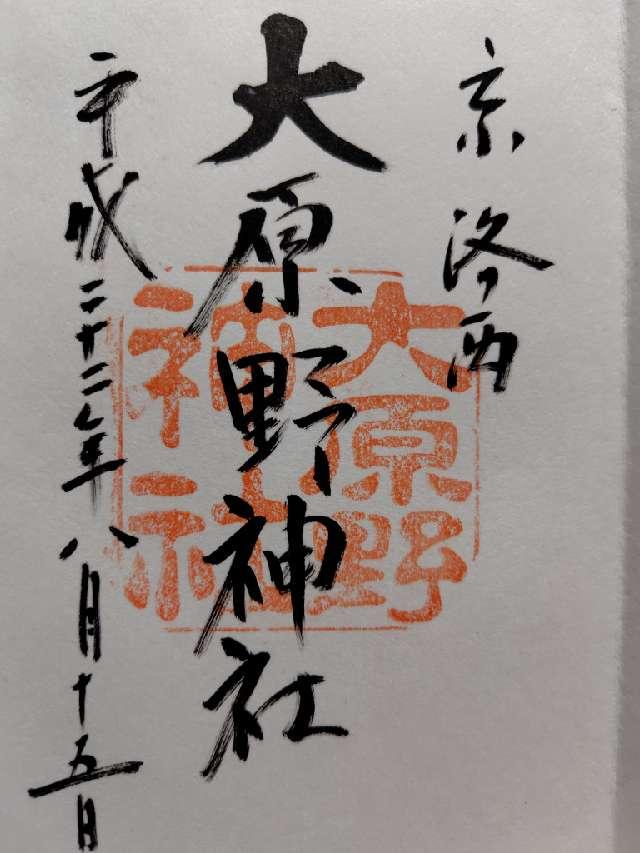 京洛西
大原野神社
平成二十二年八月十五日
大原野
神社